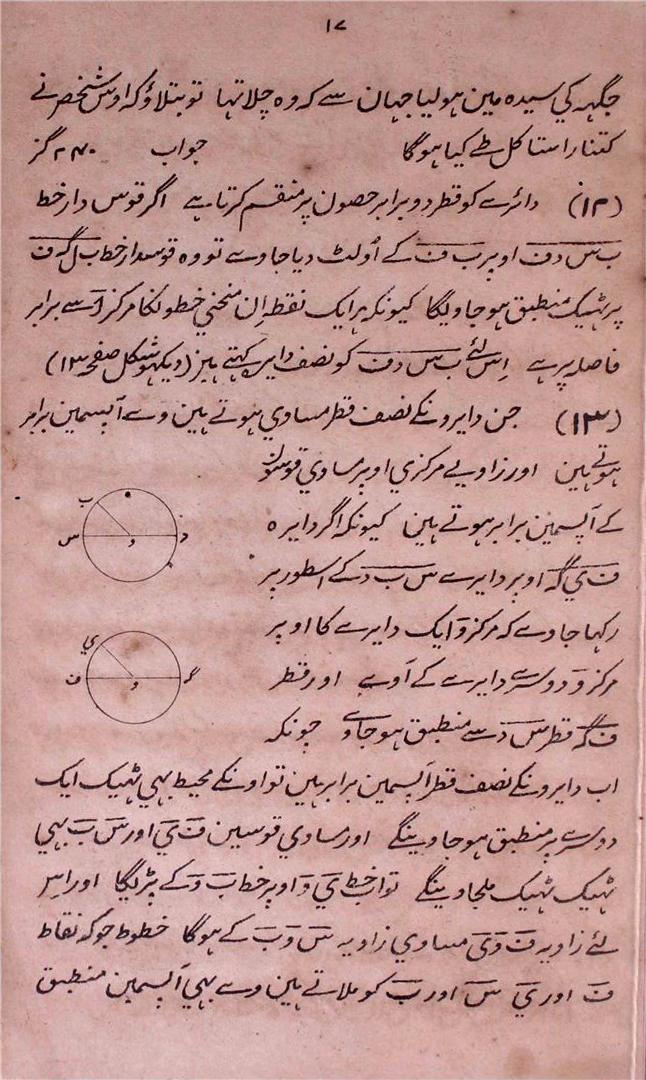 ۱۷
جگہہ کي سیدہ مین ہولیا جہان سے کہ وہ چلا تہا تو بتلاؤ کہ اوس شخص نے
کتنا راستا کل طے کیا ہوگا جواب گز
(۱۲) دائرے کو قطر دو برابر حصون پر منقسم کرتا ہے اگر قوس دار خط
ب س د ف اوپر ب ف کے اُولٹ دیا جاوے تو وہ قوسدار خط ب ل گ ف
پر ٹہیک منطبق ہو جاویگا کیونکہ ہر ایک نقطہ اِن منحني خطونکا مرکز آ سے برابر
فاصلہ پر ہے اِس لئے ب س د ف کو نصف دایرہ کہتے ہیں (دیکہو شکل صفحہ ۱۳)
(۱۳) جن دایرونکے نصف قطر مساوي ہوتے ہین وے آپسمین برابر
ہوتے ہین اور زاویے مرکزي اوپر مساوي قوسون
کے آپسمین برابر ہوتے ہین کیونکہ اگر دایرہ
ف ي گ اوپر دایرے س ب د کے اسطور پر
رکہا جاوے کہ مرکز و ایک دایرے کا اوپر
مرکز و دوسرے دایرے کے آوے اور قطر
ف گ قطر س د سے منطبق ہو جاوے چونکہ
اب دایرونکے نصف قطر آپسمین برابر ہین تو اونکے محیط بہي ٹہیک ایک
دوسرے پر منطبق ہو جاوینگے اور مساوي قوسین ف ي اور س ب بہي
ٹہیک ٹہیک ملجاوینگے تو اب خط ي و اوپر خط ب و کے پڑیگا اور اِس
لئے زاویہ ف و ی مساوي زاویہ س و ب کے ہوگا خطوط جو کہ نقاط
ف اور ي س اور ب کو ملاتے ہین وے بہي آپسمین منطبق
ب
س
و
د
ي
ف
و
گ